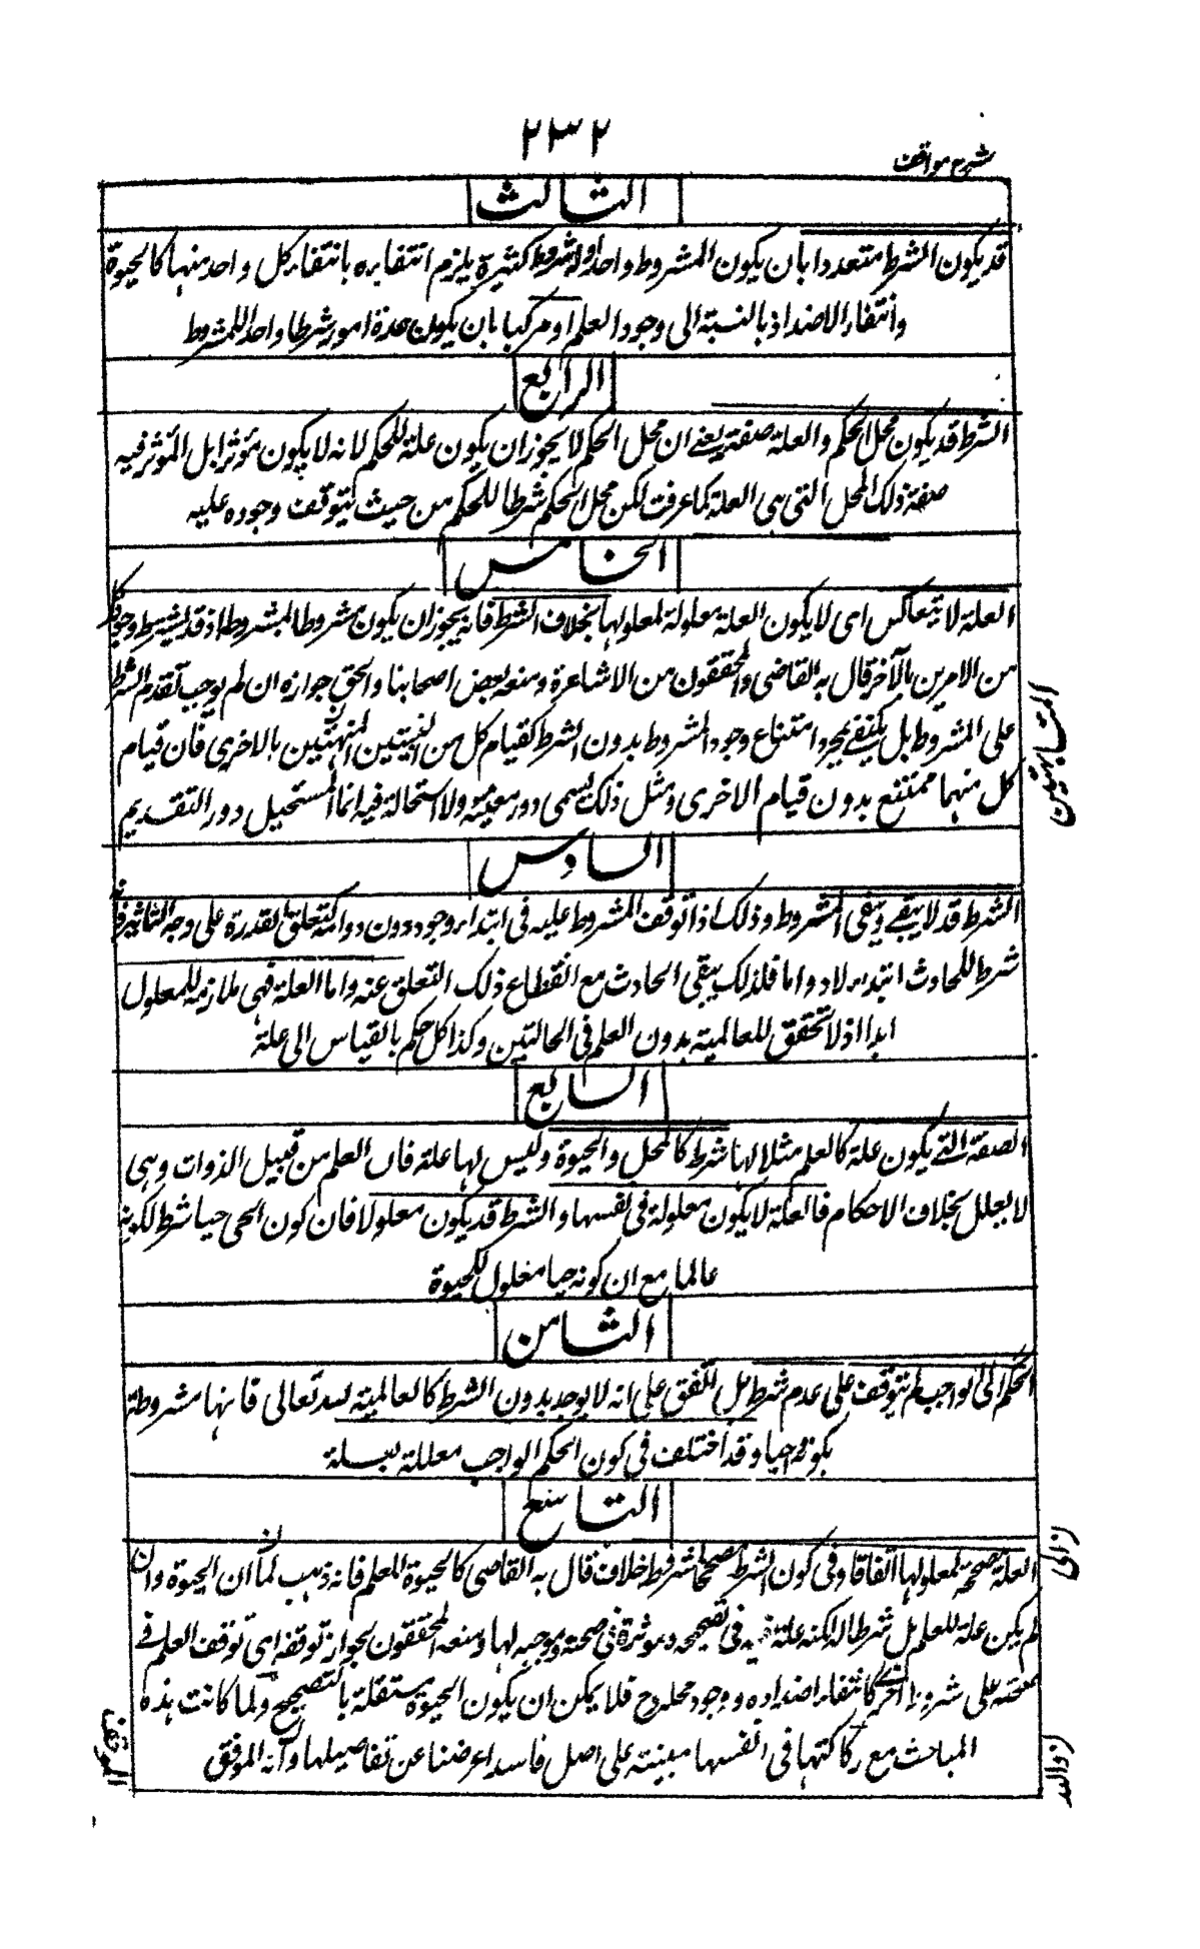 ٢٣٢
شرح مواقف
الثالث
قد يكون الشرط متعددا بان يكون المشروط واحدا وله شروط كثيرة يلزم انتفاءه بانتفاء كل واحد منها كالحيوة
وانتفاء الاضداد بالنسبة الى وجود العلم او مركبا بان يكون عدة امور شرطا واحدا للمشروط
الرابع
الشرط قد يكون محل الحكم والعلة صفة يعنے ان محل الحكم لا يجوز ان يكون علة للحكم لانه لا يكون مؤثرا بل المؤثر فيه
صفة ذلك المحل التى هى العلة كما عرفت لكن محل الحكم شرط للحكم من حيث يتوقف وجوده عليه
الخامس
العلة لا تتعاكس اى لا يكون العلة معلولة لمعلولها بخلاف الشرط فانه يجوز ان يكون مشروطا لمشروطه اذ قد يشترط وجود كل
من الامرين بالآخر قال به القاضى والمحققون من الاشاعرة ومنعه بعض اصحابنا والحق جوازه ان لم يوجب تقدم الشرط
على المشروط بل يكتفے بمجرد امتناع وجود المشروط بدون الشرط كقيام كل من البينتين المتساندتين بالاخرى فان قيام
المتساندتين
كل منهما ممتنع بدون قيام الاخرى ومثل ذلك يسمى دور معية ولا استحالة فيه انما المستحيل دور التقديم
السادس
الشرط قد لا يبقے ويبقى المشروط وذلك اذا توقف المشروط عليه فى ابتداء وجوده دون دوامه كتعلق القدرة على وجه التاثير فانه
شرط للحادث ابتداء لا دواما فلذلك يبقى الحادث مع انقطاع ذلك التعلق عنه واما العلة فهى ملازمة للمعلول
ابدا اذ لا تحقق للعالمية بدون العلم فى الحالتين وكذا كل حكم بالقياس الى علته
السابع
الصفة التے يكون علة كالعلم مثلا لها شرط كالمحل والحيوة وليس لها علة فان العلم من قبيل الذوات وهى
لا يعلل بخلاف الاحكام فالعلة لا يكون معلولة فى نفسها والشرط قد يكون معلولا فان كون الحى حيا شرط لكونه
عالما مع ان كونه حيا معلول للحيوة
الثامن
الحكم الواجب لم يتوقف على عدم شرط بل اتفق على انه لا يوجد بدون الشرط كالعالمية لله تعالى فانها مشروطة
بكونه حيا وقد اختلف فى كون الحكم الواجب معللة بعلة
التاسع
العلة مصححة لمعلولها اتفاقا وفى كون الشرط مصححا لشروطه خلاف قال به القاضى كالحيوة للعلم فانه ذهب الى ان الحيوة وان
لم يكن علة للعلم بل شرطا له لكنه علة فى تصحيحه ومؤثرة فى صحته وموجبه لها ومنعه المحققون لجواز توقفه اى توقف العلم فے
صحته على شروط اخرى كانتفاء اضداده ووجود محله فلا يمكن ان يكون الحيوة مستقلة بالتصحيح ولما كانت هذه
المباحث مع ركاكتها فى انفسها مبنية على اصل فاسد اعرضنا عن تفاصيلها والله الموفق